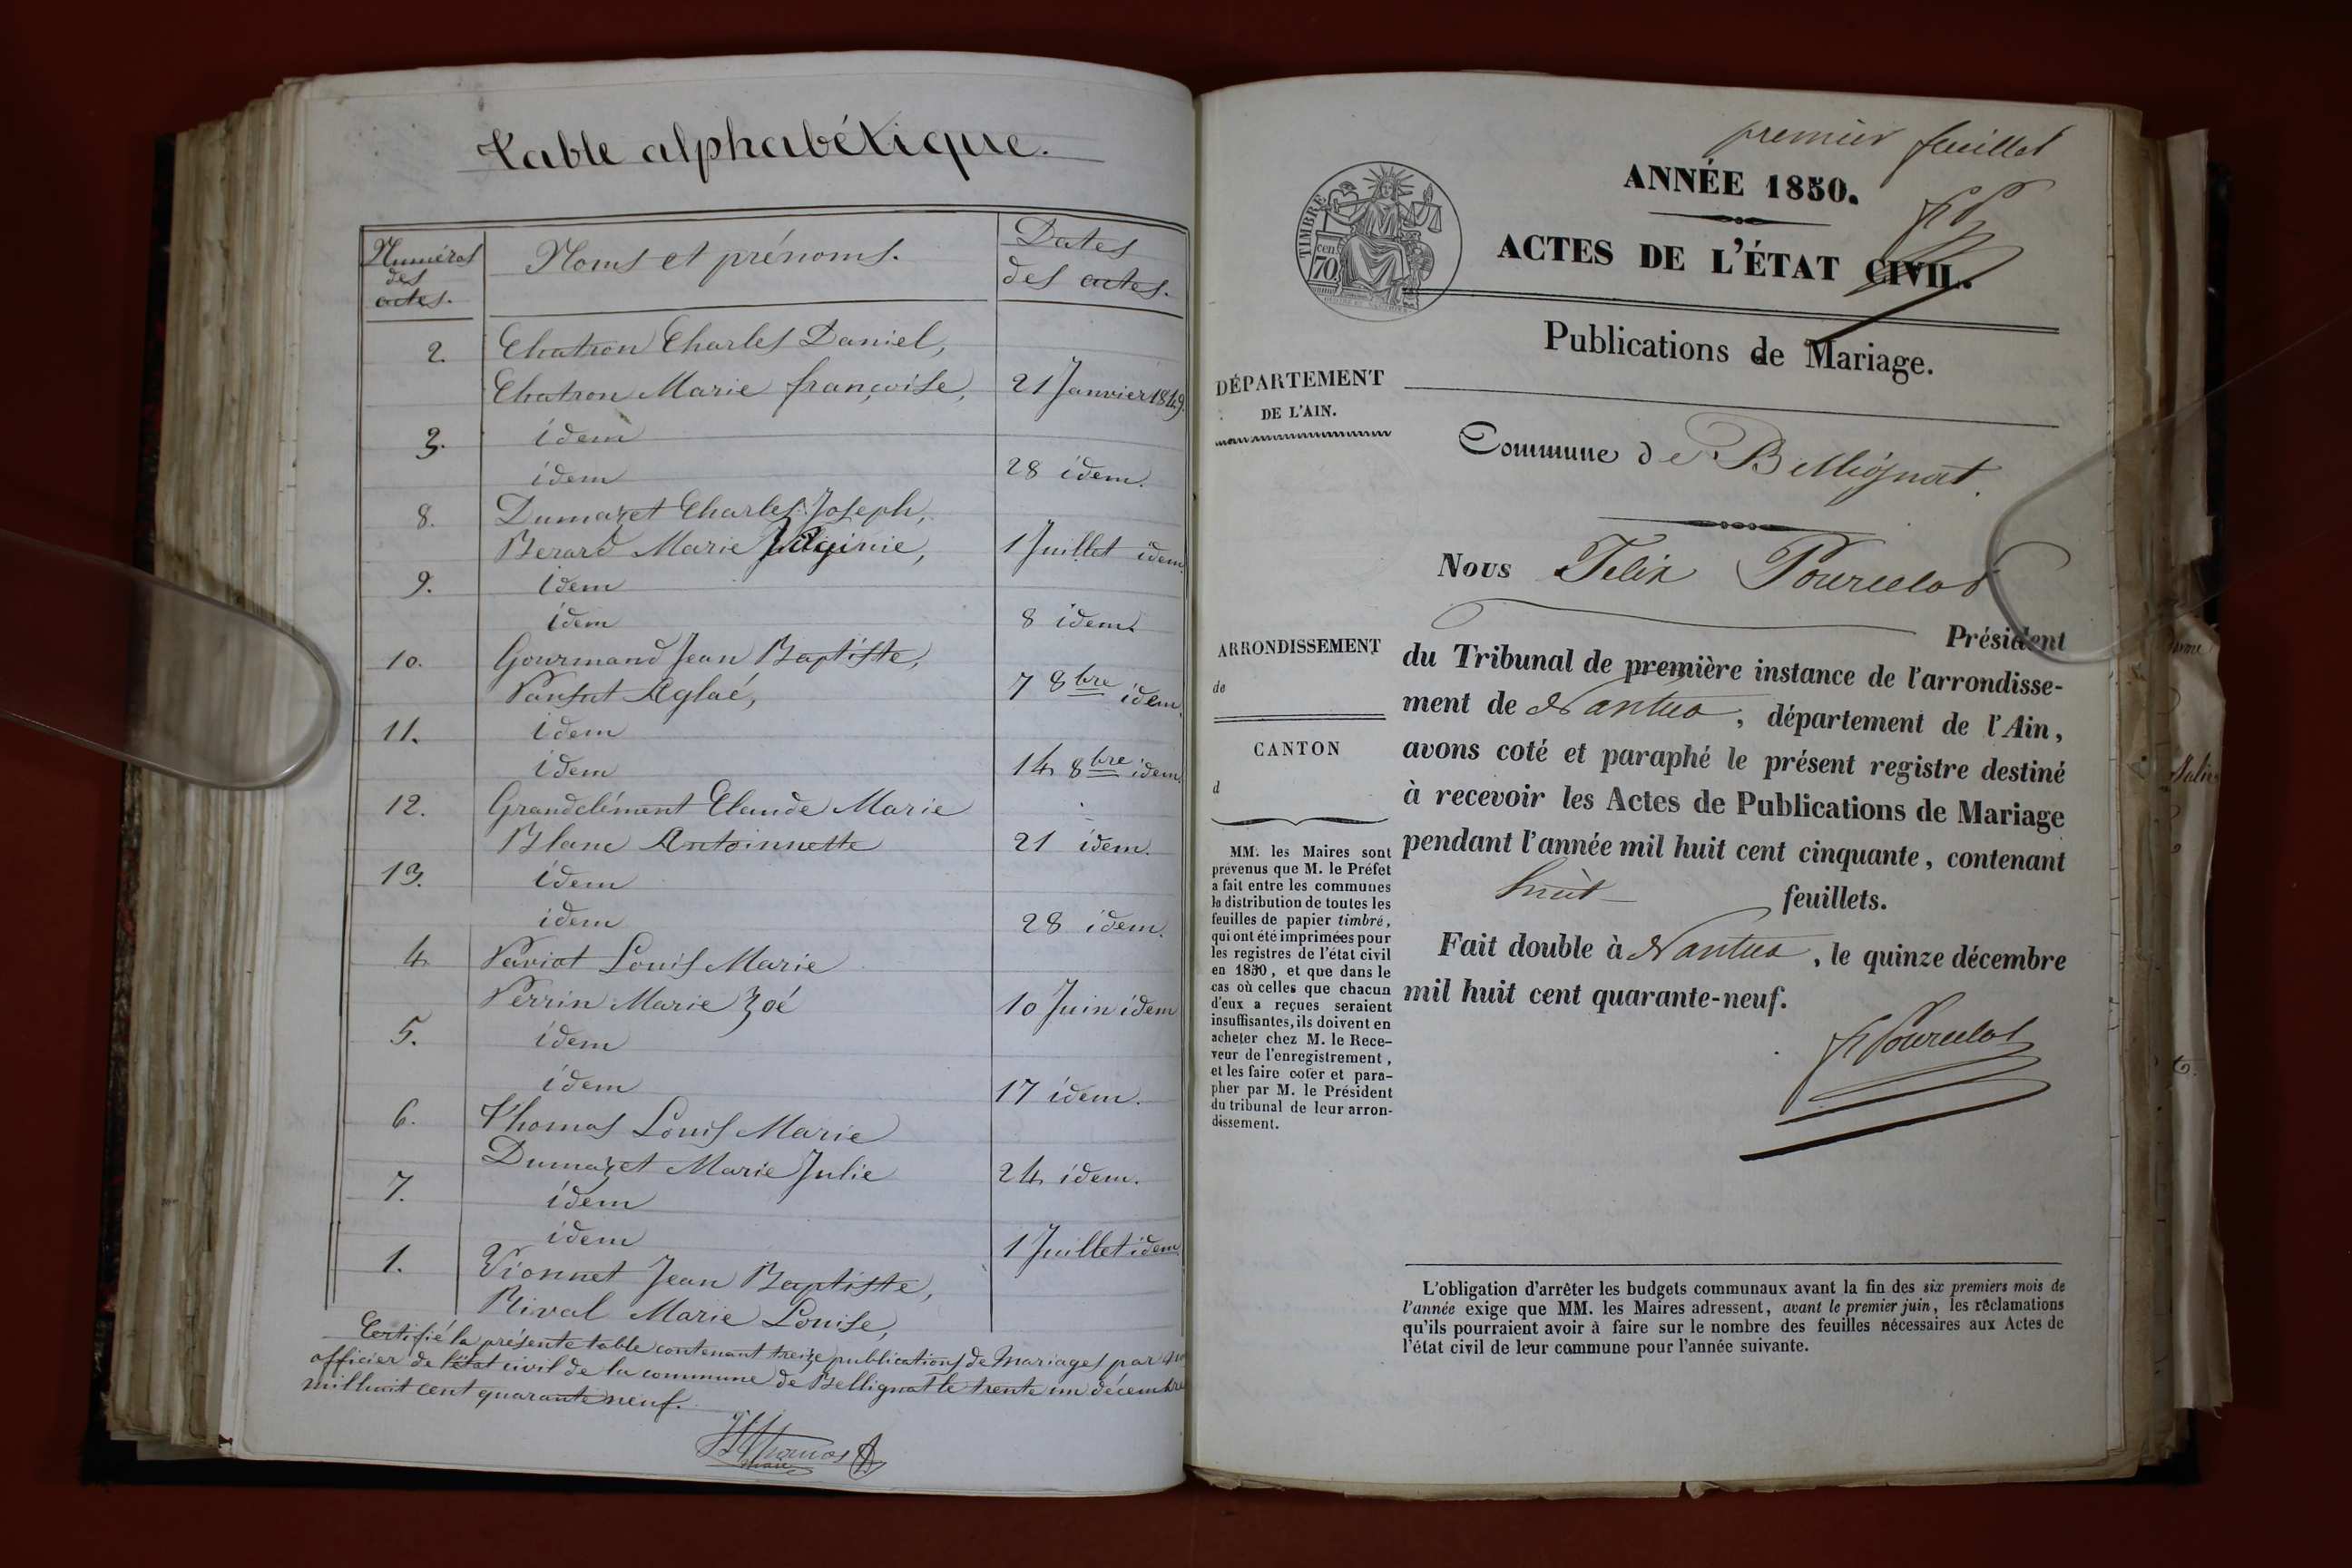 Table alphabétique.
Numéros des actes.
Noms et prénoms.
Dates des actes.
2. Chatron Charles Daniel,
Chatron Marie françoise, 21 Janvier 1849.
3. idem
idem 28 idem.
8. Dumazet Charles Joseph,
Berard Marie Virginie, 1 Juillet idem.
9. idem
idem 8 idem.
10. Gourmand Jean Baptiste,
Pansut Aglaé, 7 8bre idem.
11. idem
idem 14 8bre idem.
12. Grandclément Claude Marie
Blanc Antoinnette 21 idem.
13. idem
idem 28 idem.
4. Pariot Louis Marie
Perrin Marie Zoé 10 Juin idem
5. idem
idem 17 idem.
6. Thomas Louis Marie
Dumazet Marie Julie 24 idem.
7. idem
idem 1 Juillet idem.
1. Vionnet Jean Baptiste,
Rival Marie Louise,
Certifié la présente table contenant treize publications de Mariages par
officier de l'état civil de la commune de Bellignat le trente un décembre
mil huit cent quarante neuf.
Thomas
maire
premier feuillet
ANNÉE 1850.
TIMBRE
cen
70
ACTES DE L'ÉTAT CIVIL.
Publications de Mariage.
DÉPARTEMENT
DE L'AIN.
Commune de Bellignat.
Nous Felix Pourcelot
Président
ARRONDISSEMENT
de
CANTON
d
du Tribunal de première instance de l'arrondisse-
ment de Nantua, département de l'Ain,
avons coté et paraphé le présent registre destiné
à recevoir les Actes de Publications de Mariage
pendant l'année mil huit cent cinquante, contenant
huit feuillets.
Fait double à Nantua, le quinze décembre
mil huit cent quarante-neuf.
Pourcelot
MM. les Maires sont
prévenus que M. le Préfet
a fait entre les communes
la distribution de toutes les
feuilles de papier timbré,
qui ont été imprimées pour
les registres de l'état civil
en 1850, et que dans le
cas où celles que chacun
d'eux a reçues seraient
insuffisantes, ils doivent en
acheter chez M. le Rece-
veur de l'enregistrement,
et les faire coter et para-
pher par M. le Président
du tribunal de leur arron-
dissement.
L'obligation d'arrêter les budgets communaux avant la fin des six premiers mois de
l'année exige que MM. les Maires adressent, avant le premier juin, les réclamations
qu'ils pourraient avoir à faire sur le nombre des feuilles nécessaires aux Actes de
l'état civil de leur commune pour l'année suivante.